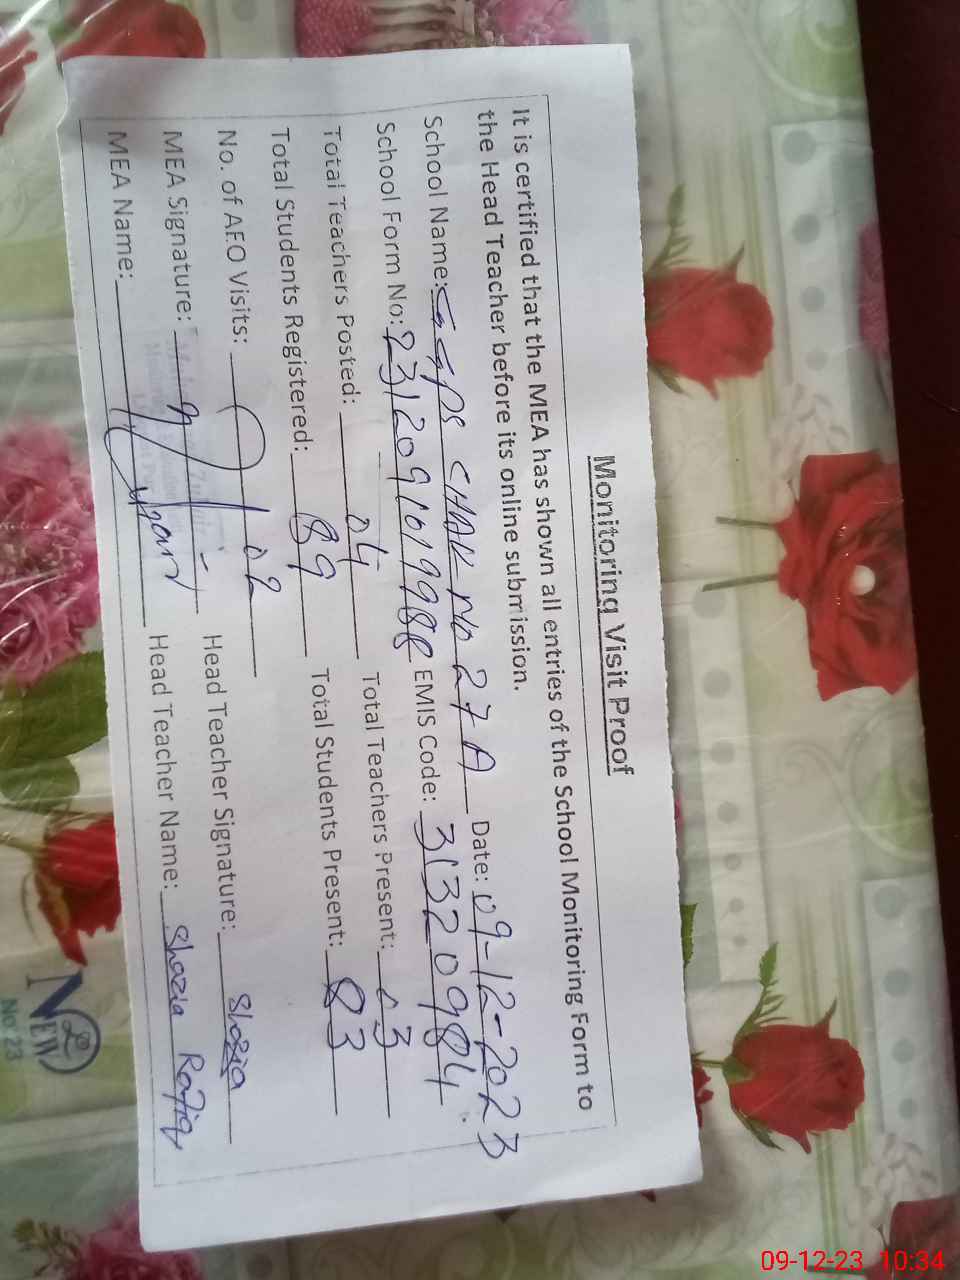 Monitoring Visit Proof
It is certified that the MEA has shown all entries of the School Monitoring Form to
the Head Teacher before its online submission.
School Name: GGPS CHAK NO 27 A Date: 09-12-2023
School Form No: 231209101998 EMIS Code: 31320984
Total Teachers Posted: 04 Total Teachers Present: 03
Total Students Registered: 89 Total Students Present: 83
No. of AEO Visits: 02
MEA Signature: Head Teacher Signature: Shazia
MEA Name: Head Teacher Name: Shazia Rafiq
NEW
No 23
09-12-23 10:34